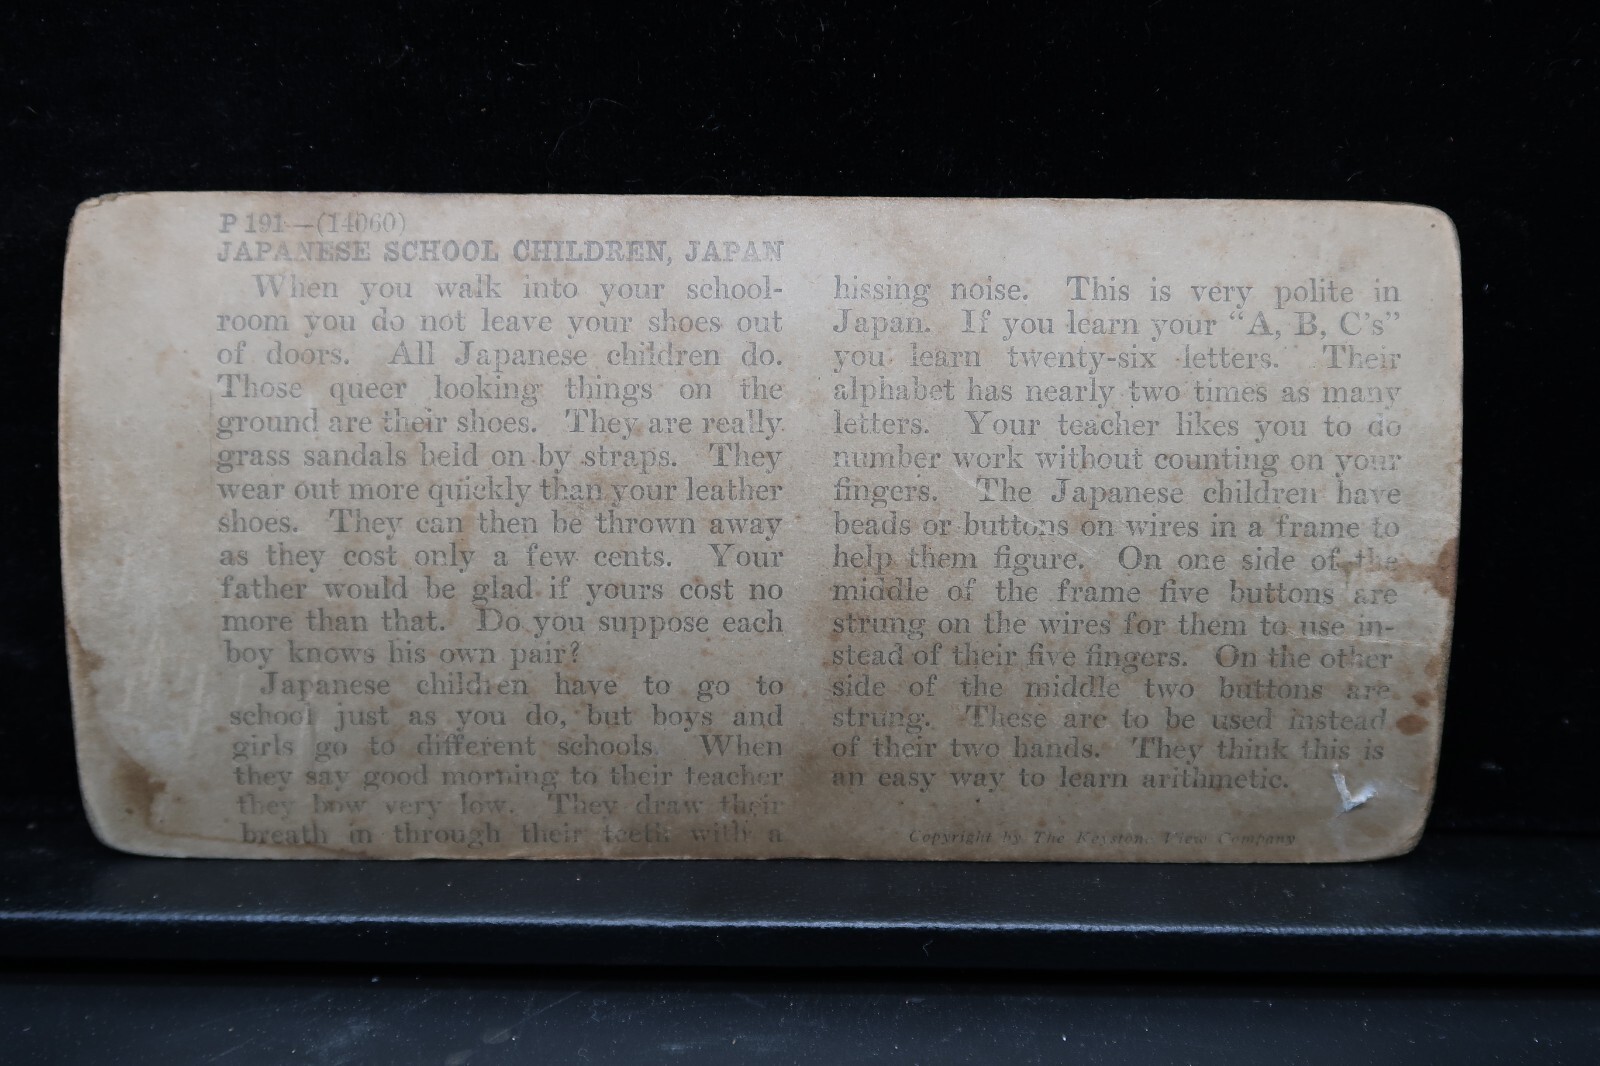 P 191—(14060)
JAPANESE SCHOOL CHILDREN, JAPAN
When you walk into your school-
room you do not leave your shoes out
of doors. All Japanese children do.
Those queer looking things on the
ground are their shoes. They are really
grass sandals held on by straps. They
wear out more quickly than your leather
shoes. They can then be thrown away
as they cost only a few cents. Your
father would be glad if yours cost no
more than that. Do you suppose each
boy knows his own pair?
Japanese children have to go to
school just as you do, but boys and
girls go to different schools. When
they say good morning to their teacher
they bow very low. They draw their
breath in through their teeth with a
hissing noise. This is very polite in
Japan. If you learn your "A, B, C's"
you learn twenty-six letters. Their
alphabet has nearly two times as many
letters. Your teacher likes you to do
number work without counting on your
fingers. The Japanese children have
beads or buttons on wires in a frame to
help them figure. On one side of the
middle of the frame five buttons are
strung on the wires for them to use in-
stead of their five fingers. On the other
side of the middle two buttons are
strung. These are to be used instead
of their two hands. They think this is
an easy way to learn arithmetic.
Copyright by The Keystone View Company